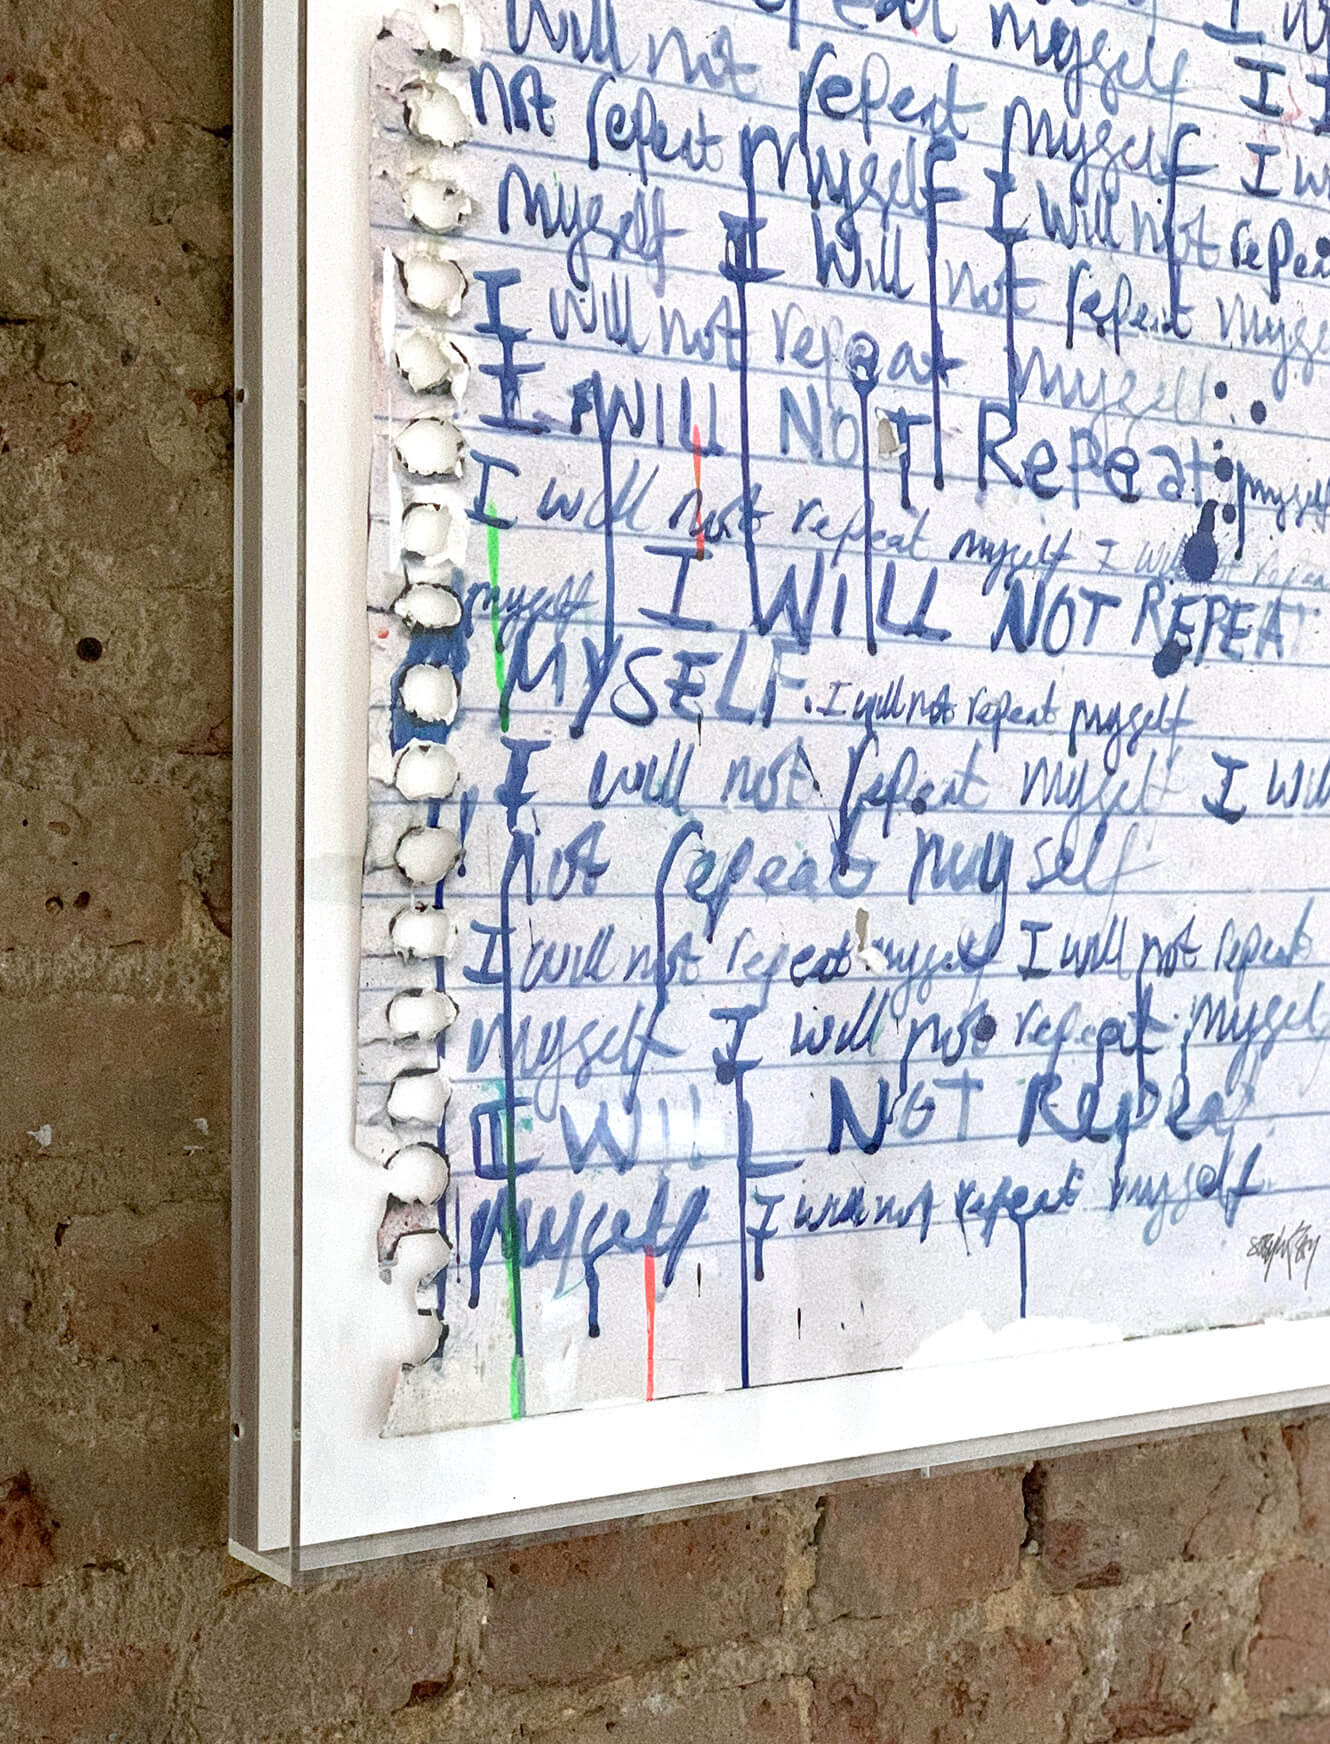 repeat myself I
Will not repeat myself I I
not repeat myself I will not repeat
myself I Will not repeat myself
I will not repeat myself
I WILL NOT Repeat myself
I will not repeat myself I will not repeat
myself I WILL NOT REPEAT
MYSELF. I will not repeat myself
I will not repeat myself I will
not repeat myself
I will not repeat myself I will not repeat
myself I will not repeat myself
I WILL NOT Repeat
Myself I will not repeat myself